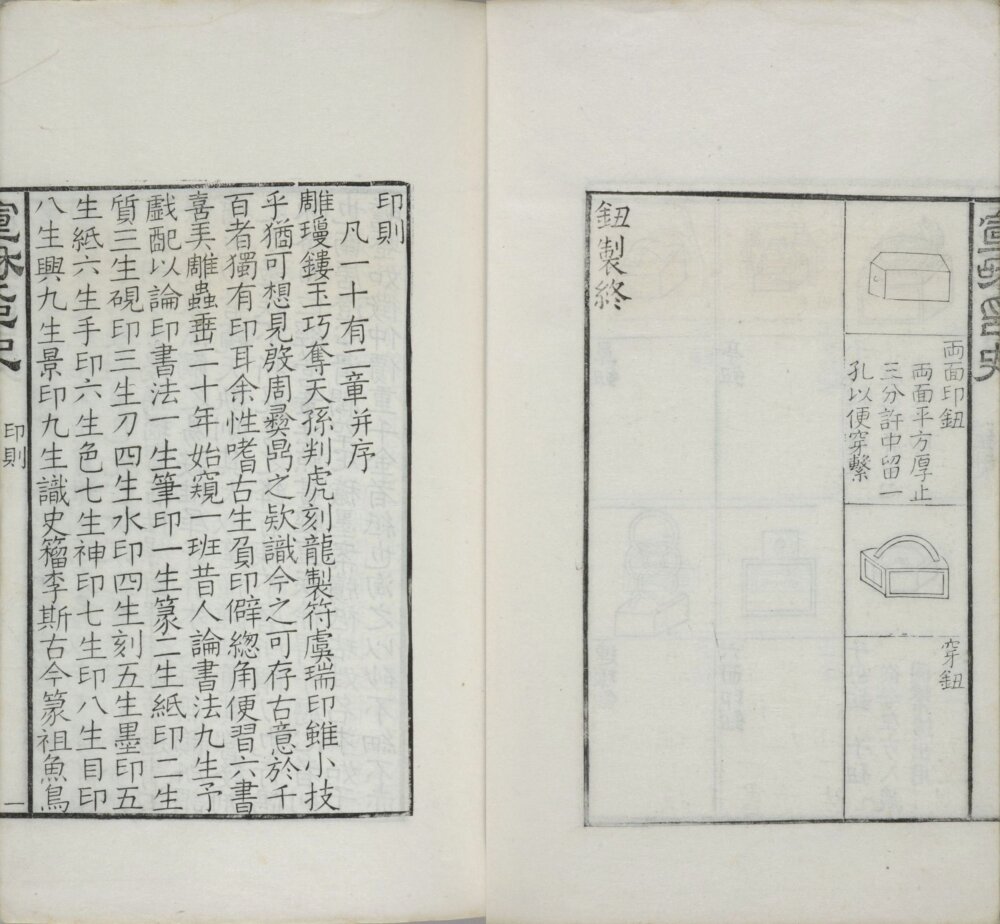 両面印鈕
両面平方厚止
三分許中留一
孔以便穿繫
穿鈕
鈕製終
印則
凡一十有二章并序
雕瓊鏤玉巧奪天孫判虎刻龍製符虞瑞印雖小技
乎猶可想見殷周彝鼎之欵識今之可存古意於千
百者獨有印耳余性嗜古生負印僻緫角便習六書
喜美雕蟲埀二十年始窺一班昔人論書法九生予
戲配以論印書法一生筆印一生篆二生紙印二生
質三生硯印三生刀四生水印四生刻五生墨印五
生紙六生手印六生色七生神印七生印八生目印
八生興九生景印九生識史籀李斯古今篆祖魚鳥
印則
一